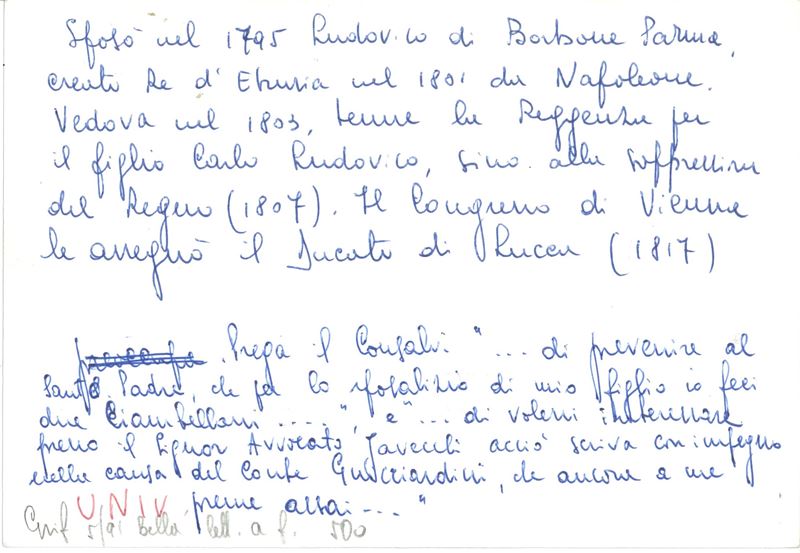 Sposò nel 1795 Ludovico di Borbone Parma,
creato Re d'Etruria nel 1801 da Napoleone.
Vedova nel 1803, tenne la Reggenza per
il figlio Carlo Ludovico, sino alla soppressione
del Regno (1807). Il Congresso di Vienna
le assegnò il Ducato di Lucca (1817)
Prega il Consalvi "... di prevenire al
Santo Padre, che per lo sposalizio di mio figlio io feci
due Ciambellani ....", e "... di volersi interessare
presso il Signor Avvocato acciò scriva con impegno
nella causa del Conte Guicciardini, che ancora a me
preme assai..."
UNIV
5/91 Bella lett. a f. 500